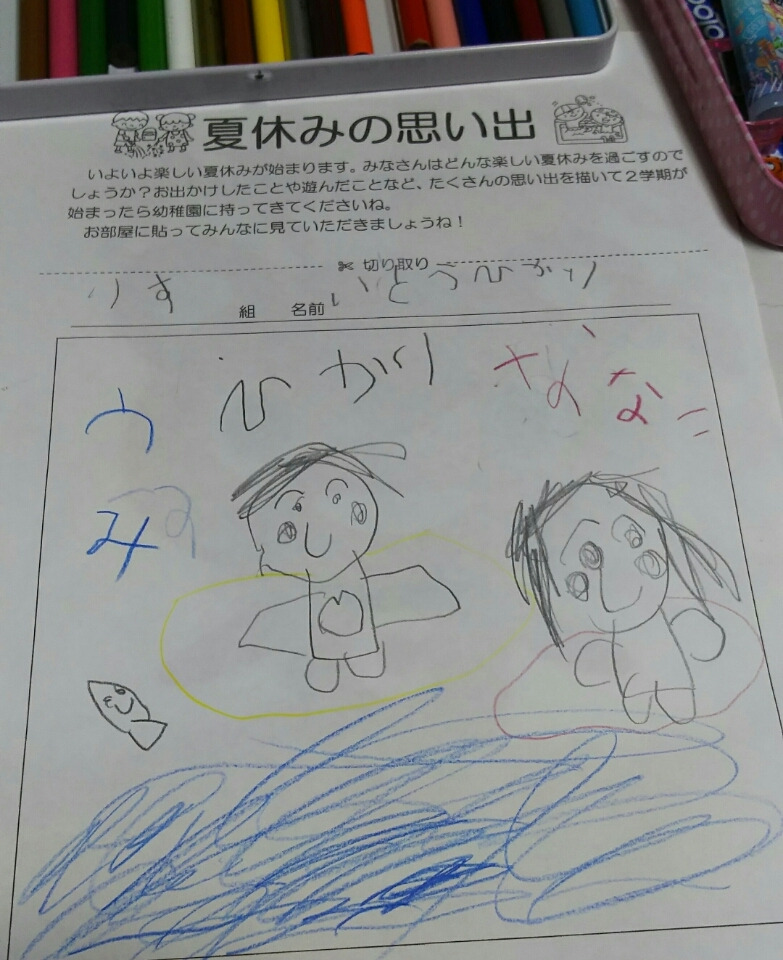 夏休みの思い出
いよいよ楽しい夏休みが始まります。みなさんはどんな楽しい夏休みを過ごすので
しょうか？お出かけしたことや遊んだことなど、たくさんの思い出を描いて２学期が
始まったら幼稚園に持ってきてくださいね。
お部屋に貼ってみんなに見ていただきましょうね！
切り取り
りす 組 名前 いとうひかり
ひかり ななこ
う
み